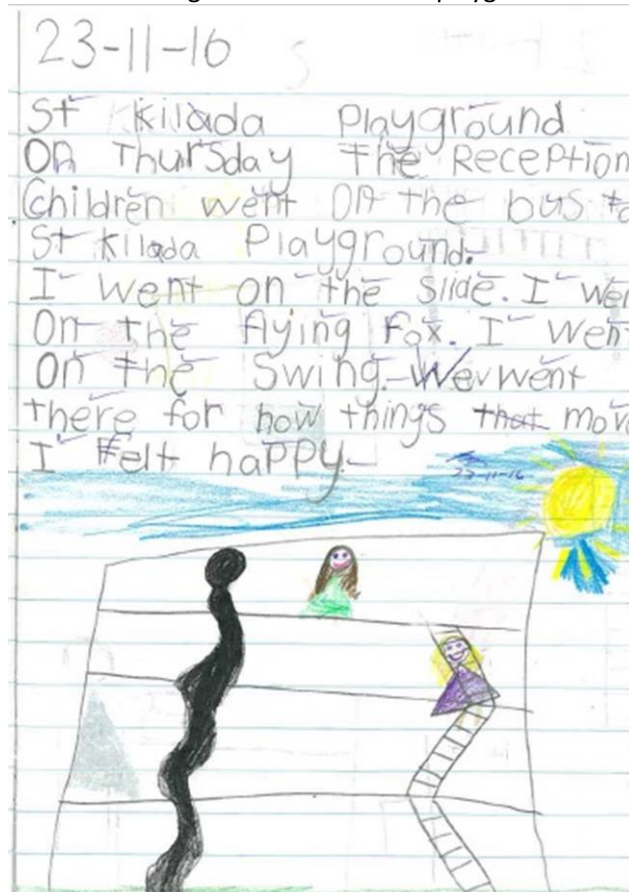 23-11-16
St Kilada Playground
On Thursday The Reception
Children went On the bus to
St Kilada Playground.
I went on the slide. I wen
On the flying Fox. I went
On The Swing. We went
there for how things that mov
I Felt happy.
23-11-16